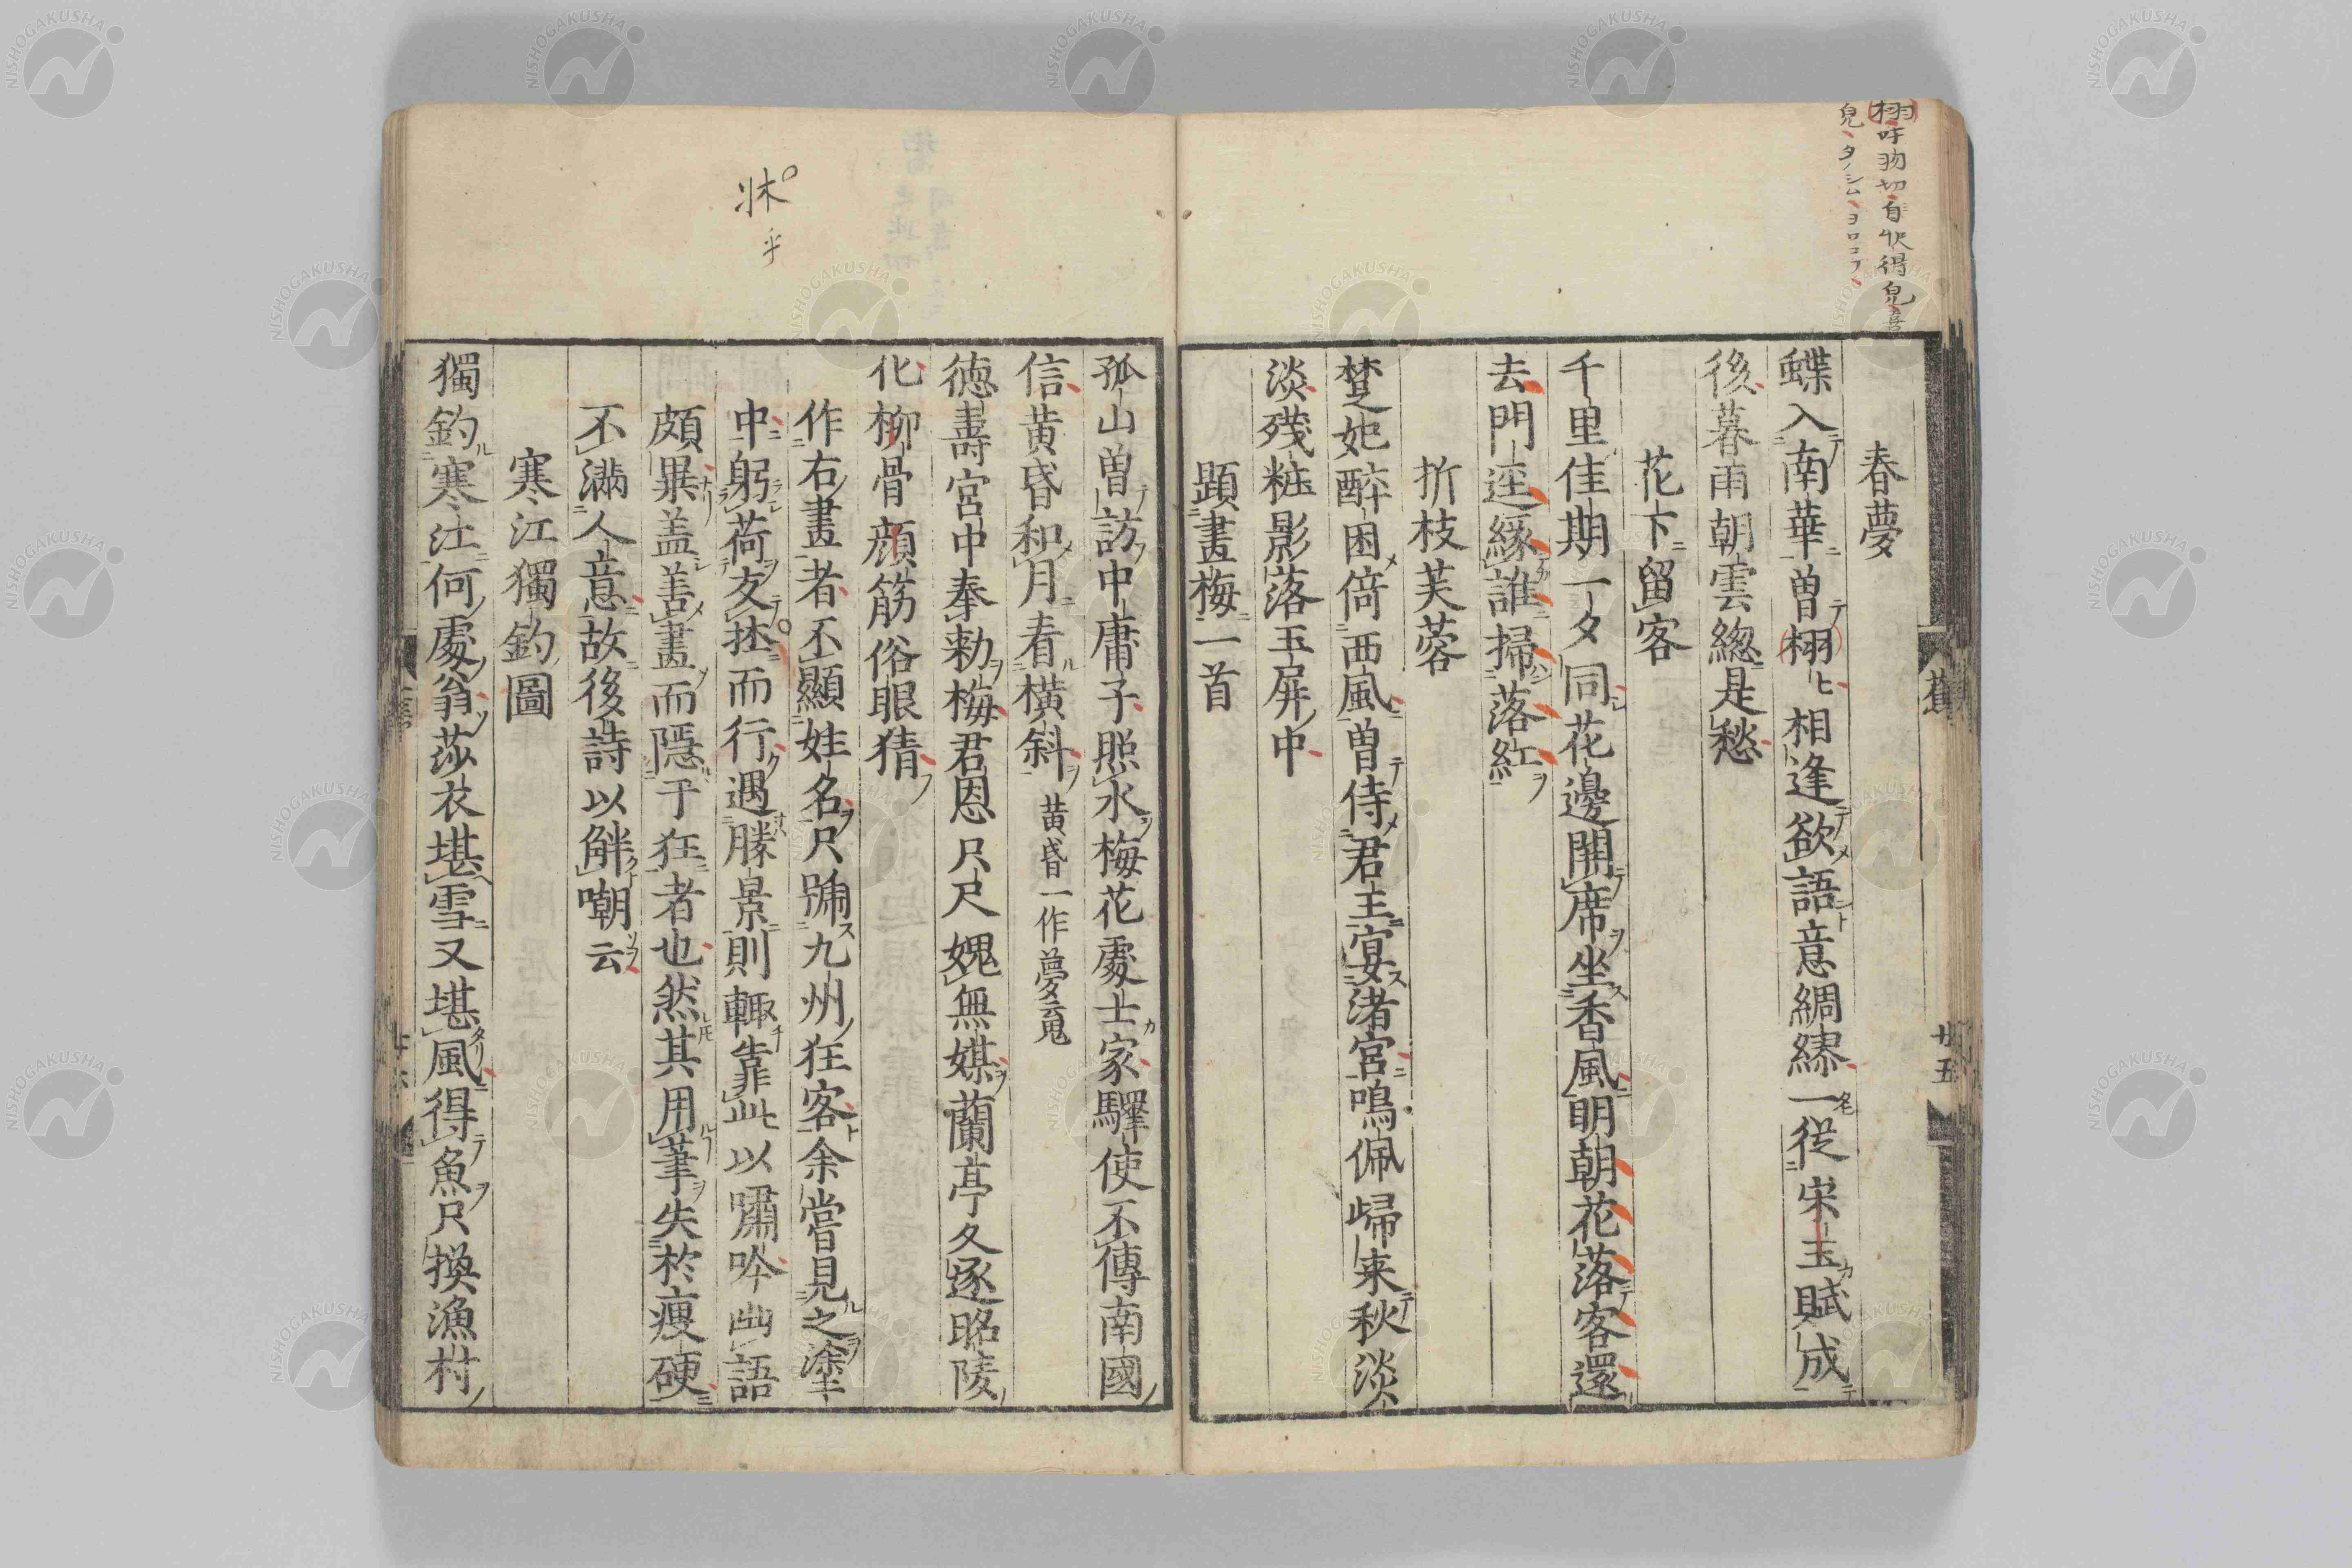 栩吁羽切自快得皃喜
皃タノシムヨロコフ
春夢
蝶入南華曽栩〻相逢欲語意綢繆一従宋玉賦成
後暮雨朝雲總是愁
花下留客
千里佳期一夕同花邊開席坐香風明朝花落客還
去門逕縁誰掃落紅
折枝芙蓉
楚妃醉困倚西風曽侍君主宴渚宮鳴佩歸来秋淡
淡殘粧影落玉屏中
題畫梅一首
蕉
廿五
孤山曽訪中庸子照水梅花處士家驛使不傳南國
信黄昏和月看橫斜
黄昏一作夢魂
德壽宮中奉勅梅君恩只尺媿無媒蘭亭久逐昭陵
化柳骨顔筋俗眼猜
作右畫者不顯姓名只號九州狂客余嘗見之塗
中躬荷友抔而行遇勝景則輙靠此以嘯吟幽語
頗異盖善畫而隱于狂者也然其用筆失於瘦硬
不滿人意故後詩以解嘲云
寒江獨釣圖
獨釣寒江何處翁莎衣堪雪又堪風得魚只換漁村